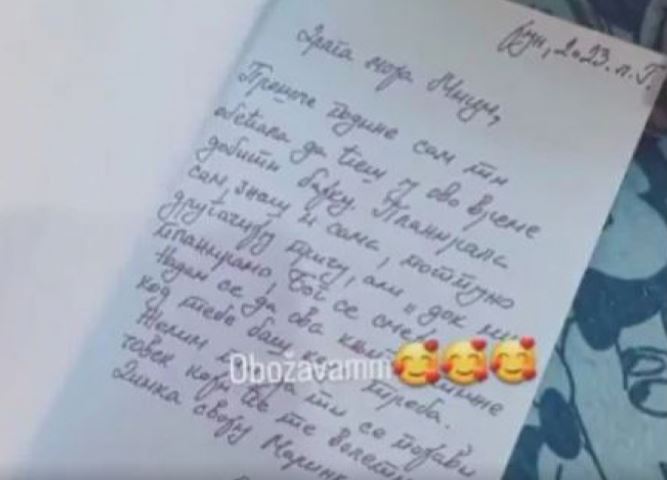 Јун, 2023. п. Г.
Драга моја Мици,
Прошле године сам ти
обећала да ћеш у ово време
добити барку. Планирала
сам, знаш и сама, потпуно
другачију причу, али "док ми
планирамо, Бог се смеје
Надам се да ова
код тебе баш треба.
Желим да ти се појави
човек који ће те волети
Динка своју Марин
Obozavamm🥰🥰🥰